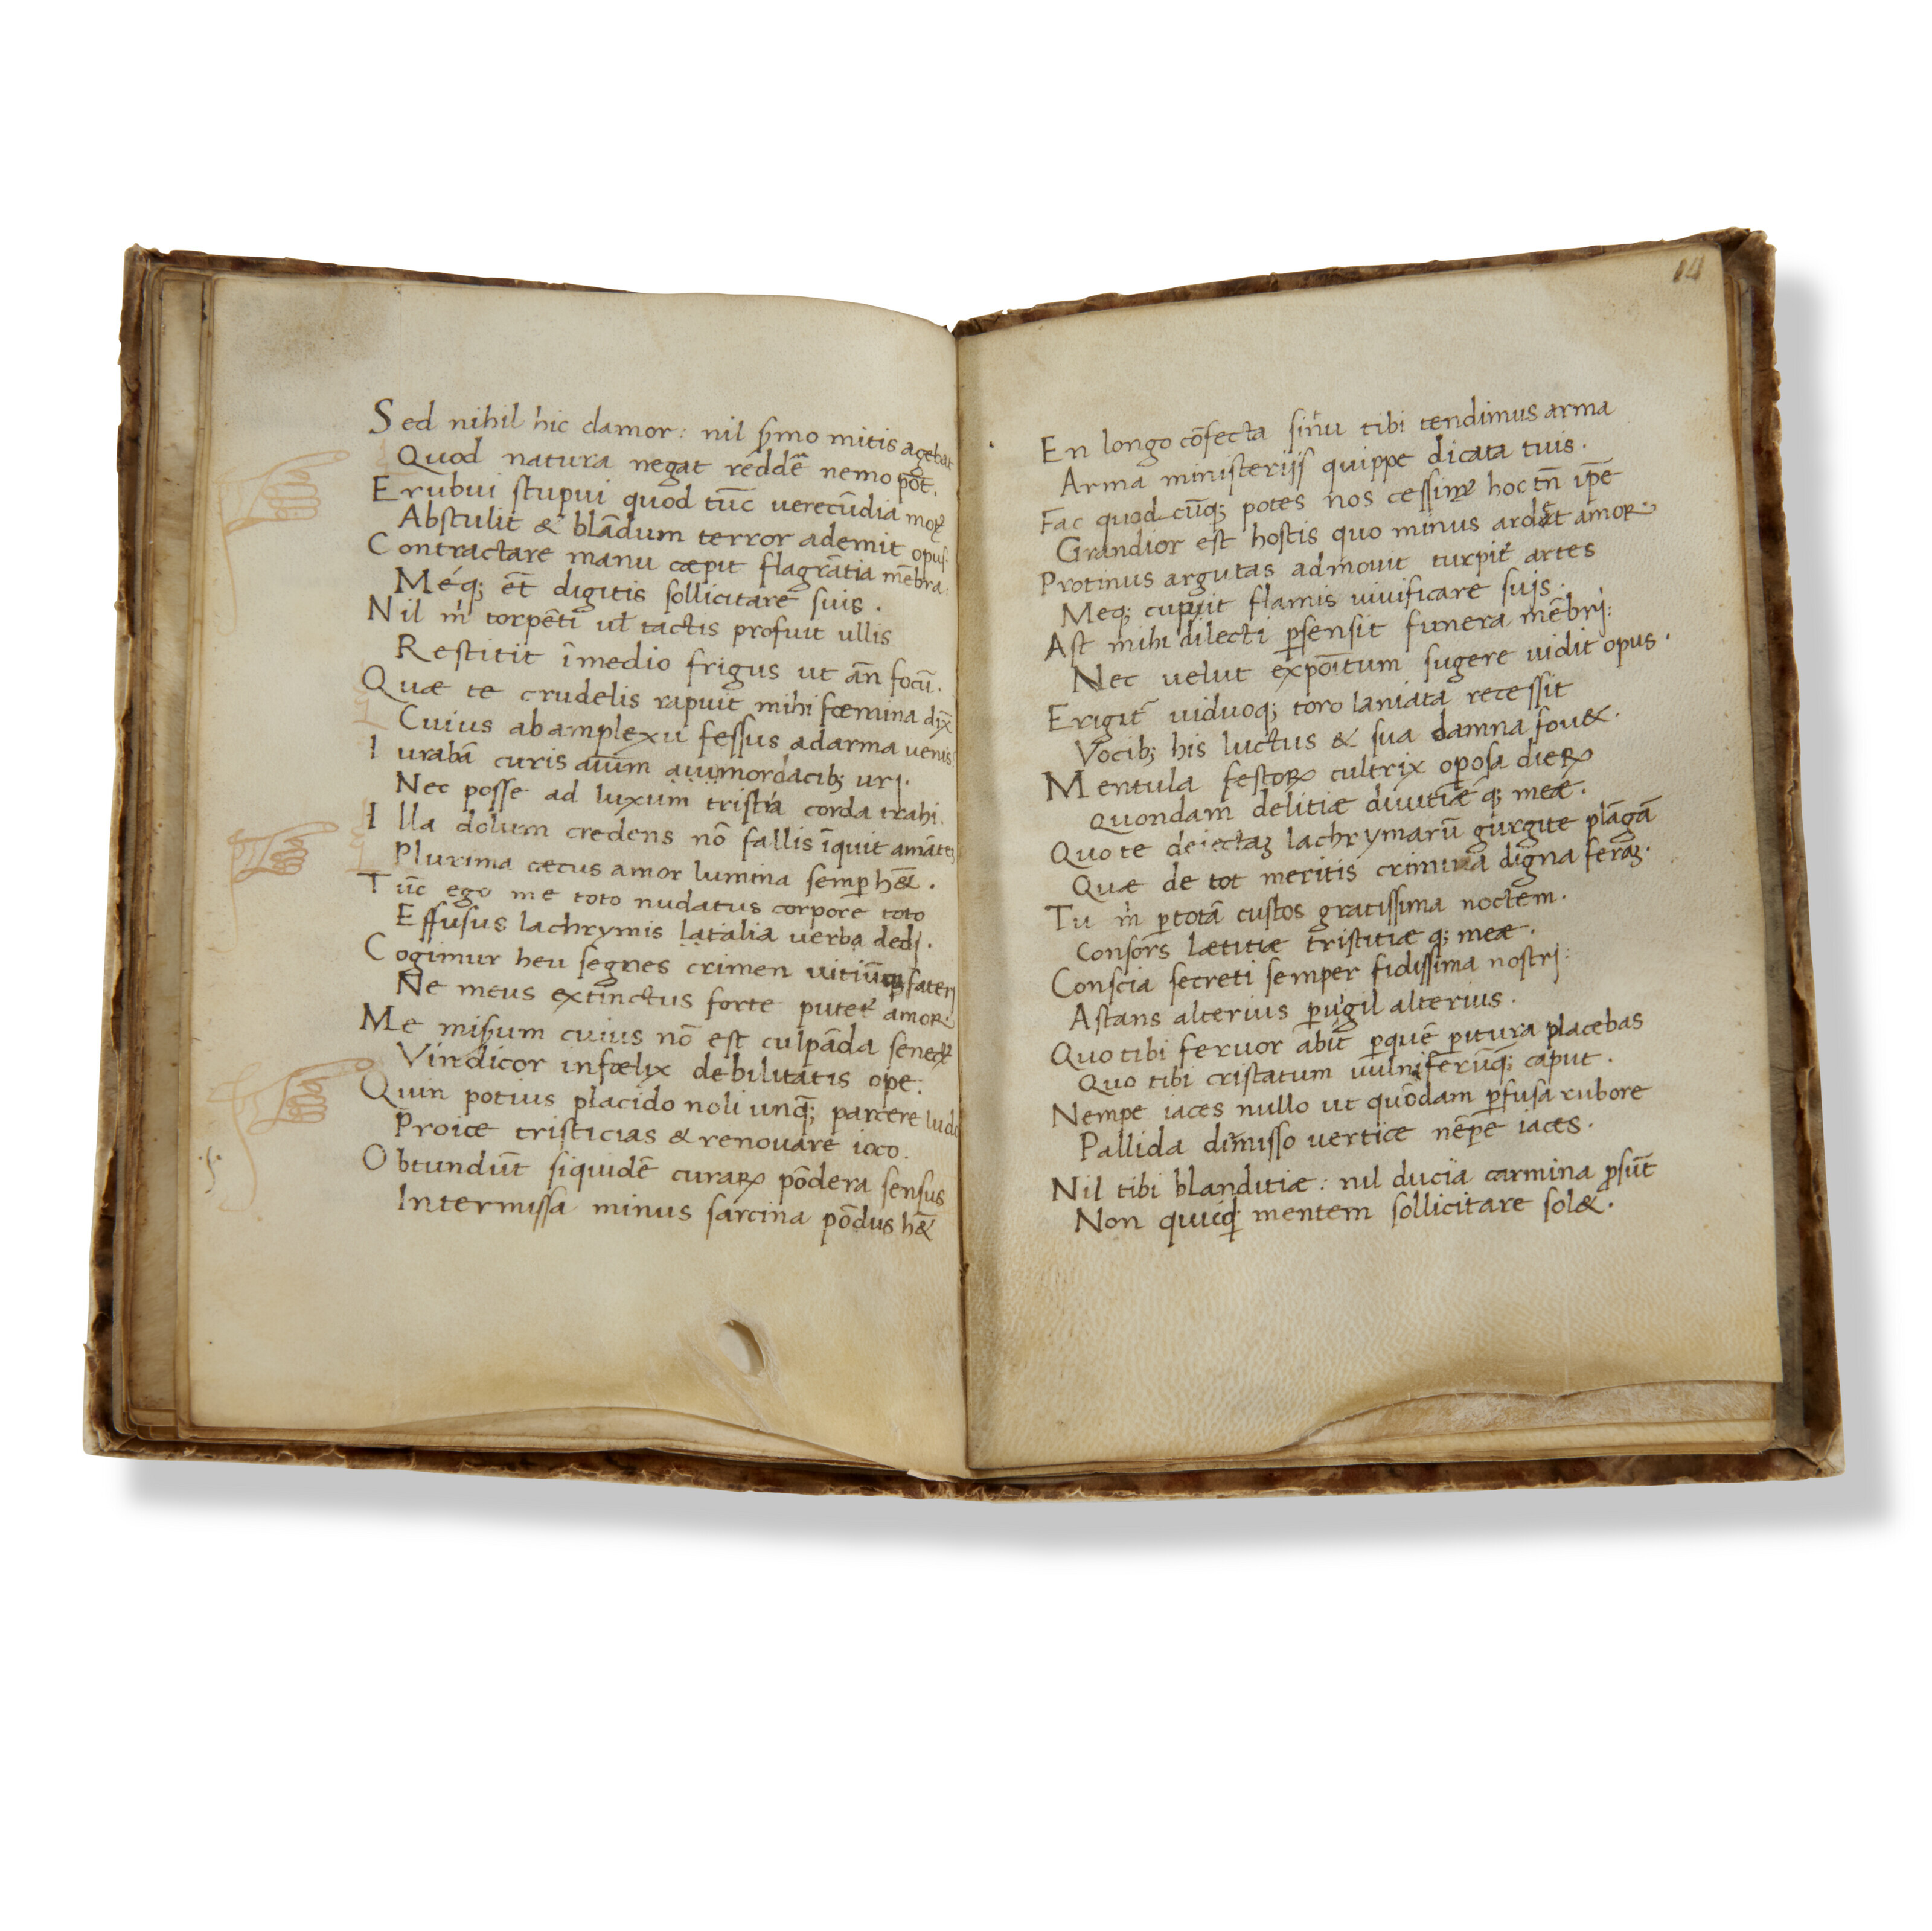 Sed nihil hic clamor: nil ẜmo mitis agebat
Quod natura negat reddē nemo pōt.
Erubui stupui quod tūc uerecūdia mot᷑
Abstulit & blādum terror ademit opus.
Contractare manu cæpit flagrātia mēbra:
Méq; et̄ digitis sollicitare suis.
Nil m̍ torpēti ul̄ tactis profuit ullis
Restitit īmedio frigus ut ān focū.
Quæ te crudelis rapuit mihi fœmina dix̄
Cuius ab amplexu fessus ad arma uenis
Iurabā curis aīum mordacib; urj.
Nec posse ad luxum tristia corda trahi.
Illa dolum credens nō fallis īquit amātes
Plurima cæcus amor lumina semꝑ h̄&.
Tūc ego me toto nudatus corpore toto
Effusus lachrymis latalia uerba dedj.
Cogimur heu segnes crimen uitiūqꝫ faterj
Ne meus extinctus forte putet᷑ amor.
Me miẜum cuius nō est culpāda senect᷑
Vindicor infœlix debilitatis ope.
Quin potius placido noli unq̄; parcere ludo
Proice tristicias & renouare ioco.
Obtundūt siquidē curaꝝ pōdera sensus
Intermissa minus sarcina pōdus h̄&
14
En longo cōfecta sinu tibi tendimus arma
Arma ministerijs quippe dicata tuis.
Fac quod cūq; potes nos cessim᷑ hoc tn̄ ip̄e
Grandior est hostis quo minus ardet amor.
Protinus argutas admouit turpit᷑ artes
Meq; cupiit flamis uiuificare suis.
Ast mihi dilecti ꝑsensit funera mēbrj:
Nec uelut expōitum sugere uidit opus.
Erigit᷑ uiduoq; toro laniata recessit
Vocib; his luctus & sua damna fou&.
Mentula festoꝝ cultrix oꝑosa dieꝝ
Quondam delitiæ diuitiæ q; meæ.
Quo te deiectaꝫ lachrymarū gurgite plāgā
Quæ de tot meritis crimina digna feraꝫ.
Tu m̍ ꝑ totā custos gratissima noctem.
Consors lætitiæ tristitiæ q; meæ.
Conscia secreti semper fidissima nostrj:
Astans alterius ꝑuigil alterius.
Quo tibi feruor abiit ꝑ quē ꝑitura placebas
Quo tibi cristatum uulniferūq; caput.
Nempe iaces nullo ut quōdam ꝑfusa rubore
Pallida dimisso uertice nēpe iaces.
Nil tibi blanditiæ: nil ducia carmina ꝓsūt
Non quicq̄ mentem sollicitare sol&.